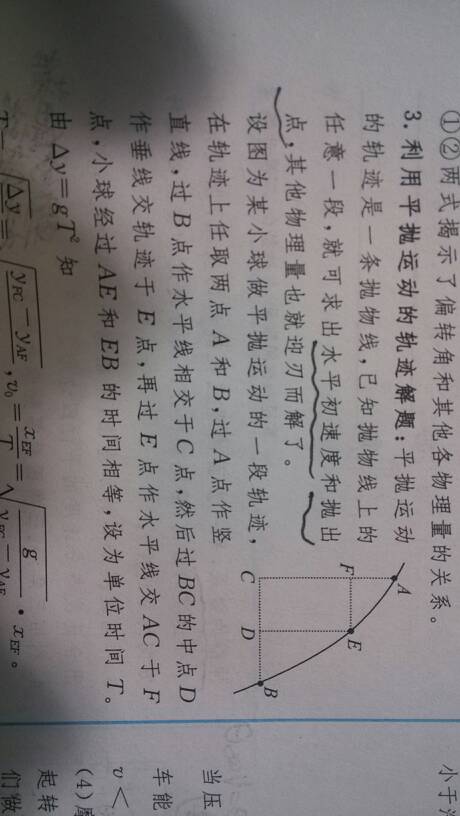 ①②两式揭示了偏转角和其他各物理量的关系。
3. 利用平抛运动的轨迹解题:平抛运动
的轨迹是一条抛物线,已知抛物线上的
任意一段,就可求出水平初速度和抛出
点,其他物理量也就迎刃而解了。
设图为某小球做平抛运动的一段轨迹,
在轨迹上任取两点 A 和 B,过 A 点作竖
直线,过 B 点作水平线相交于 C 点,然后过 BC 的中点 D
作垂线交轨迹于 E 点,再过 E 点作水平线交 AC 于 F
点,小球经过 AE 和 EB 的时间相等,设为单位时间 T。
由 Δy=gT² 知
A
F
E
C
D
B
小于
当压
车能
v<
(4)
起转
们做